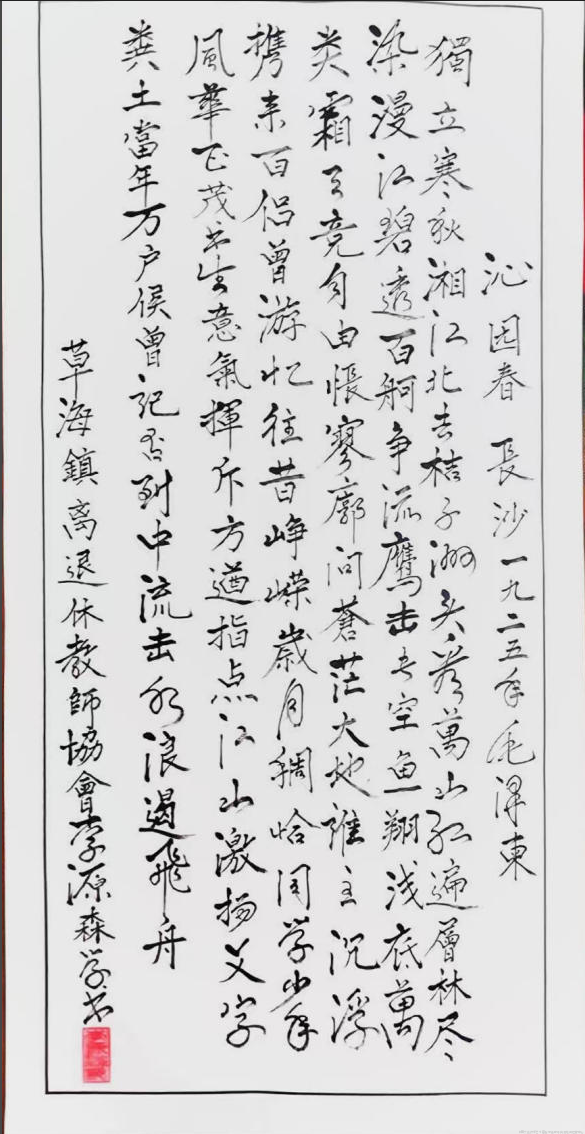 沁园春 長沙 一九二五年 毛泽東
獨立寒秋湘江北去桔子洲头看萬山红遍層林尽
染漫江碧透百舸争流鹰击长空鱼翔浅底萬
类霜天竞自由悵寥廓问蒼茫大地谁主沉浮
携来百侣曾游忆往昔峥嵘歲月稠恰同学少年
風華正茂书生意氣揮斥方遒指点江山激扬文字
粪土當年万户侯曾记否到中流击水浪遏飞舟
草海鎮离退休教師協會李源森学书